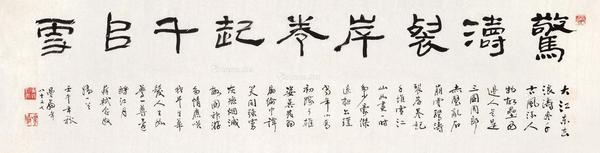 驚濤裂岸卷起千𠂤雪
大江東去
浪濤盡千
古風流人
物故壘西
邊人道是
三國周郎
赤壁亂石
崩雲驚濤
裂岸卷起
千堆雪江
山如畫一時
多少豪傑
遙想公瑾
當年小喬
初嫁了雄
姿英發羽
扇綸巾談
笑間強虜
灰飛煙滅
故國神遊
多情應笑
我早生華
髮人生如
夢一尊還
酹江月
蘇軾念奴
嬌
壬午年秋